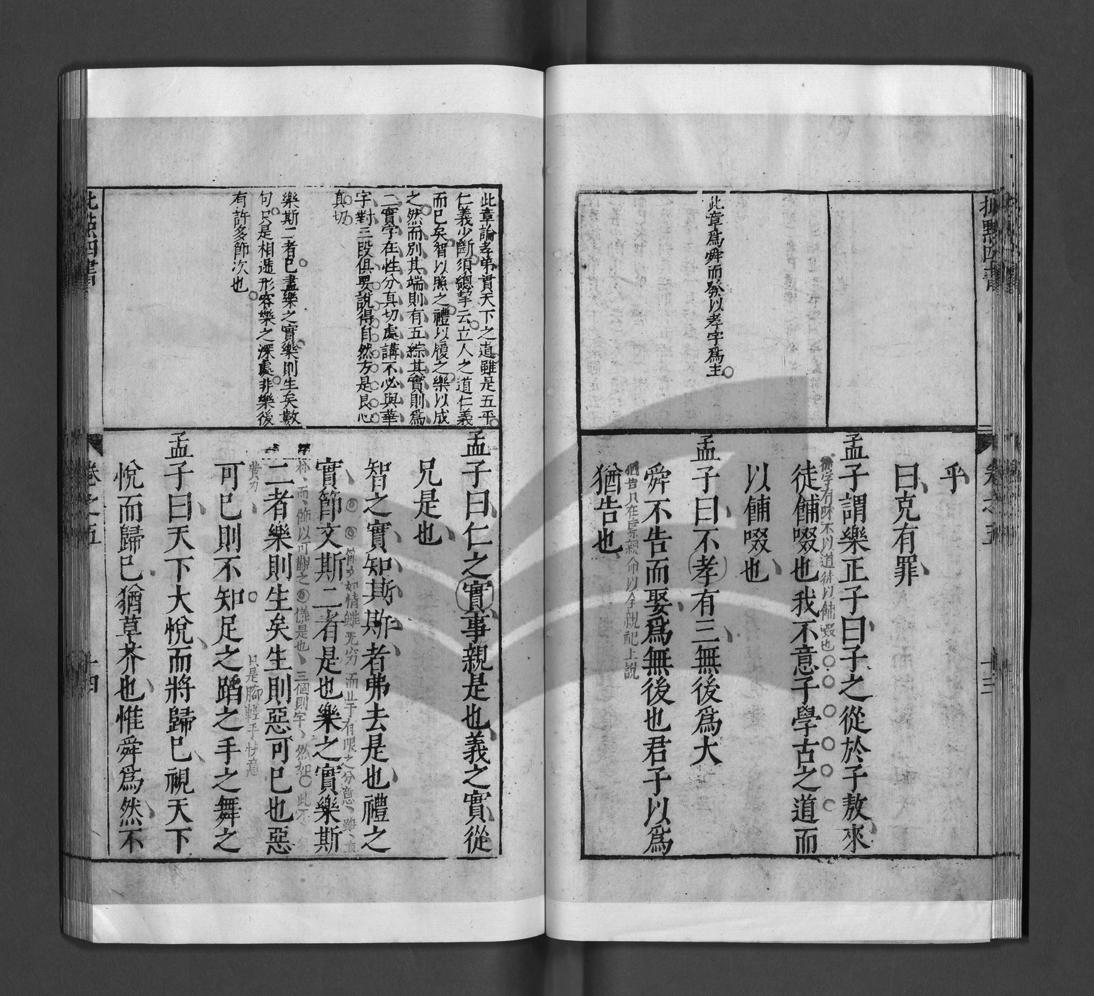 此章為舜而發以孝字為主
乎
曰克有罪
孟子謂樂正子曰子之從於子敖來
徒餔啜也我不意子學古之道而
以餔啜也
孟子曰不孝有三無後為大
舜不告而娶為無後也君子以為
猶告也
卷之五
十三
此章論孝弟貫天下之道雖是五平
仁義少斷須總挈云立人之道仁義
而已矣智以照之禮以履之樂以成
之然而別其端則有五綜其實則為
二實字在性分真切處講不必與華
字對三段俱要說得自然方是良心
真切
樂斯二者已盡樂之實樂則生矣數
句只是相遞形容樂之深處非樂後
有許多節次也
孟子曰仁之實事親是也義之實從
兄是也
智之實知斯斯者弗去是也禮之
實節文斯二者是也樂之實樂斯
二者樂則生矣生則惡可已也惡
可已則不知足之蹈之手之舞之
只是腳輕手
孟子曰天下大悅而將歸已視天下
悅而歸已猶草芥也惟舜為然不
批點四書
卷之五
十四